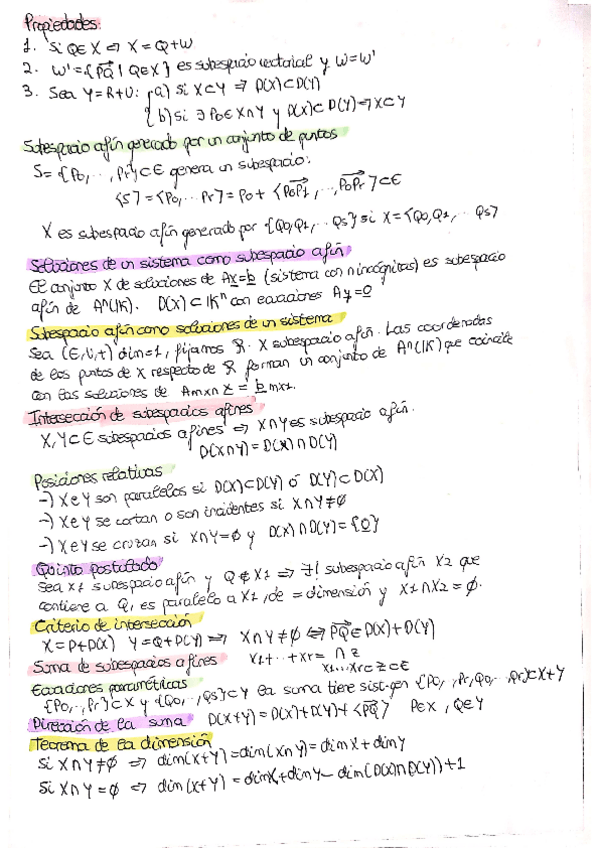 Propiedades:
1. Si Q∈X ⇒ X = Q+W
2. W'={PQ⃗ | Q∈X} es subespacio vectorial y W=W'
3. Sea Y=R+U: a) Si X⊂Y ⇒ D(X)⊂D(Y)
b) Si ∃ P₀∈X∩Y y D(X)⊂D(Y) ⇒ X⊂Y
Subespacio afín generado por un conjunto de puntos
S={P₀,..,Pr}⊂E genera un subespacio:
<S>=<P₀,...Pr>=P₀+<P₀P₁⃗,..,P₀Pr⃗>⊂E
X es subespacio afín generado por {Q₀,Q₁,..Qs} si X=<Q₀,Q₁,..Qs>
Soluciones de un sistema como subespacio afín
El conjunto X de soluciones de Ax=b (sistema con n incógnitas) es subespacio
afín de Aⁿ(K). D(X)⊂Kⁿ con ecuaciones Ay=0
Subespacio afín como soluciones de un sistema
Sea (E,V,+) dim=1, fijamos R. X subespacio afín. Las coordenadas
de los puntos de X respecto de R forman un conjunto de Aⁿ(K) que coincide
con las soluciones de Amxn x = b mx1.
Intersección de subespacios afines
X,Y⊂E subespacios afines ⇒ X∩Y es subespacio afín.
D(X∩Y)=D(X)∩D(Y)
Posiciones relativas
-) X e Y son paralelos si D(X)⊂D(Y) ó D(Y)⊂D(X)
-) X e Y se cortan o son incidentes si X∩Y≠∅
-) X e Y se cruzan si X∩Y=∅ y D(X)∩D(Y)={0}
Quinto postulado
Sea X1 subespacio afín y Q∉X1 ⇒ ∃! subespacio afín X2 que
contiene a Q, es paralelo a X1, de = dimensión y X1∩X2=∅.
Criterio de intersección
X=P+D(X) Y=Q+D(Y) ⇒ X∩Y≠∅ ⇔ PQ⃗∈D(X)+D(Y)
Suma de subespacios afines X1+..+Xr= ∩ Z
X1...Xr⊂Z⊂E
Ecuaciones paramétricas
{P₀,..,Pr}⊂X y {Q₀,..,Qs}⊂Y la suma tiene sist-gen {P₀,..,Pr,Q₀,..Qr}⊂X+Y
Dirección de la suma D(X+Y)=D(X)+D(Y)+<PQ⃗> P∈X, Q∈Y
Teorema de la dimensión
Si X∩Y≠∅ ⇒ dim(X+Y)=dim(X∩Y)=dimX+dimY
Si X∩Y=∅ ⇒ dim(X+Y)=dimX+dimY-dim(D(X)∩D(Y))+1